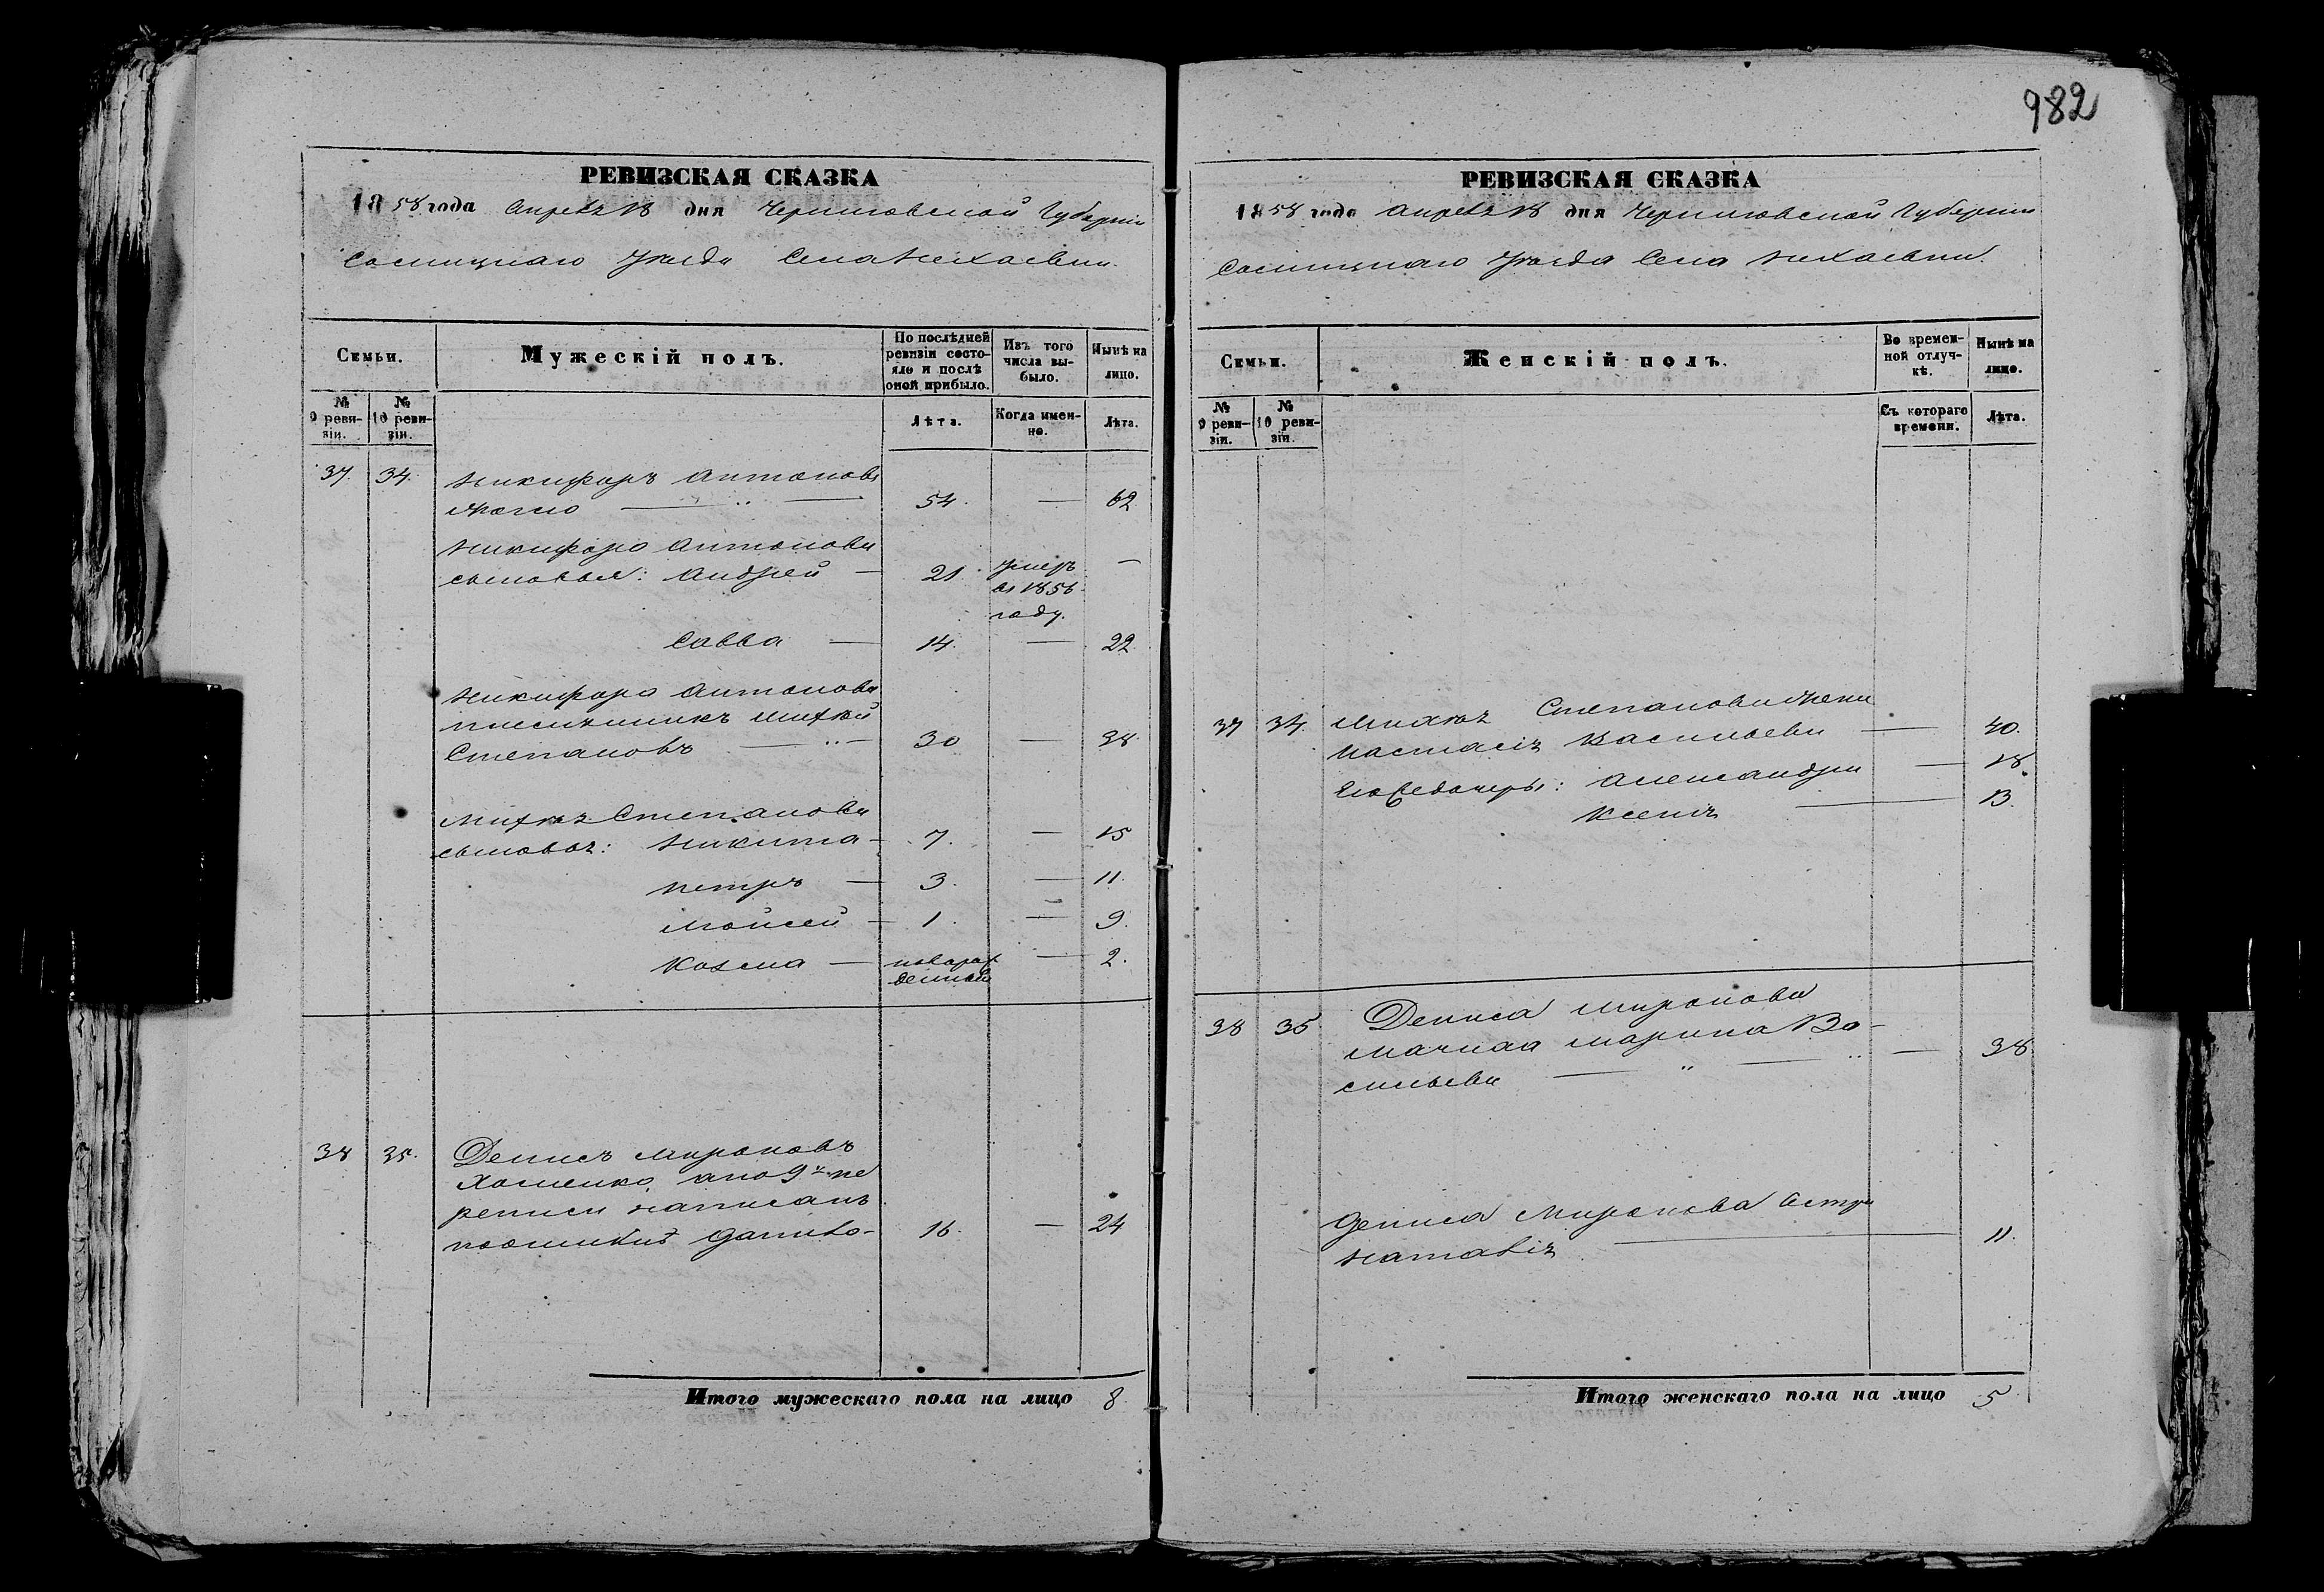 982
РЕВИЗСКАЯ СКАЗКА
1858 года Апреля 18 дня Черниговской Губерніи
Сосницкаго Уезда Села Нехаевки
Семьи.
Мужескій полъ.
По послѣдней ревизіи состояло и послѣ оной прибыло.
Изъ того числа выбыло.
Нынѣ на лицо.
№ 9 ревизіи.
№ 10 ревизіи.
Лѣта.
Когда именно.
Лѣта.
37. 34. Никифоръ Антоновъ
54. — 62
Никифора Антонова
сыновья: Андрей — 21 умеръ —
въ 1856
году.
Савва — 14. — 22
Никифора Антонова
племянникъ Михей
Степановъ — 30 — 38
Михея Степанова
сыновья: Никита — 7. — 15
Петръ — 3. — 11.
Мойсей — 1. — 9.
Козма — новорож
денный — 2.
38 35. Денисъ Мироновъ
Хоменко, а по 9й пе
реписи написанъ
16. — 24
Итого мужескаго пола на лицо 8
РЕВИЗСКАЯ СКАЗКА
1858 года Апреля 18 дня Черниговской Губерніи
Сосницкаго Уезда Села Нехаевки.
Семьи.
Женскій полъ.
Во временной отлучкѣ.
Нынѣ на лицо.
№ 9 ревизіи.
№ 10 ревизіи.
Съ котораго времени.
Лѣта.
37 34. Михея Степанова жена
Настасія Васильева — 40.
Его дочеры: Александра — 18.
Ксенія — 13.
38 35 Дениса Миронова
мачиха Марина Ва-
сильева — 38
Дениса Миронова сестра
Наталія — 11.
Итого женскаго пола на лицо 5